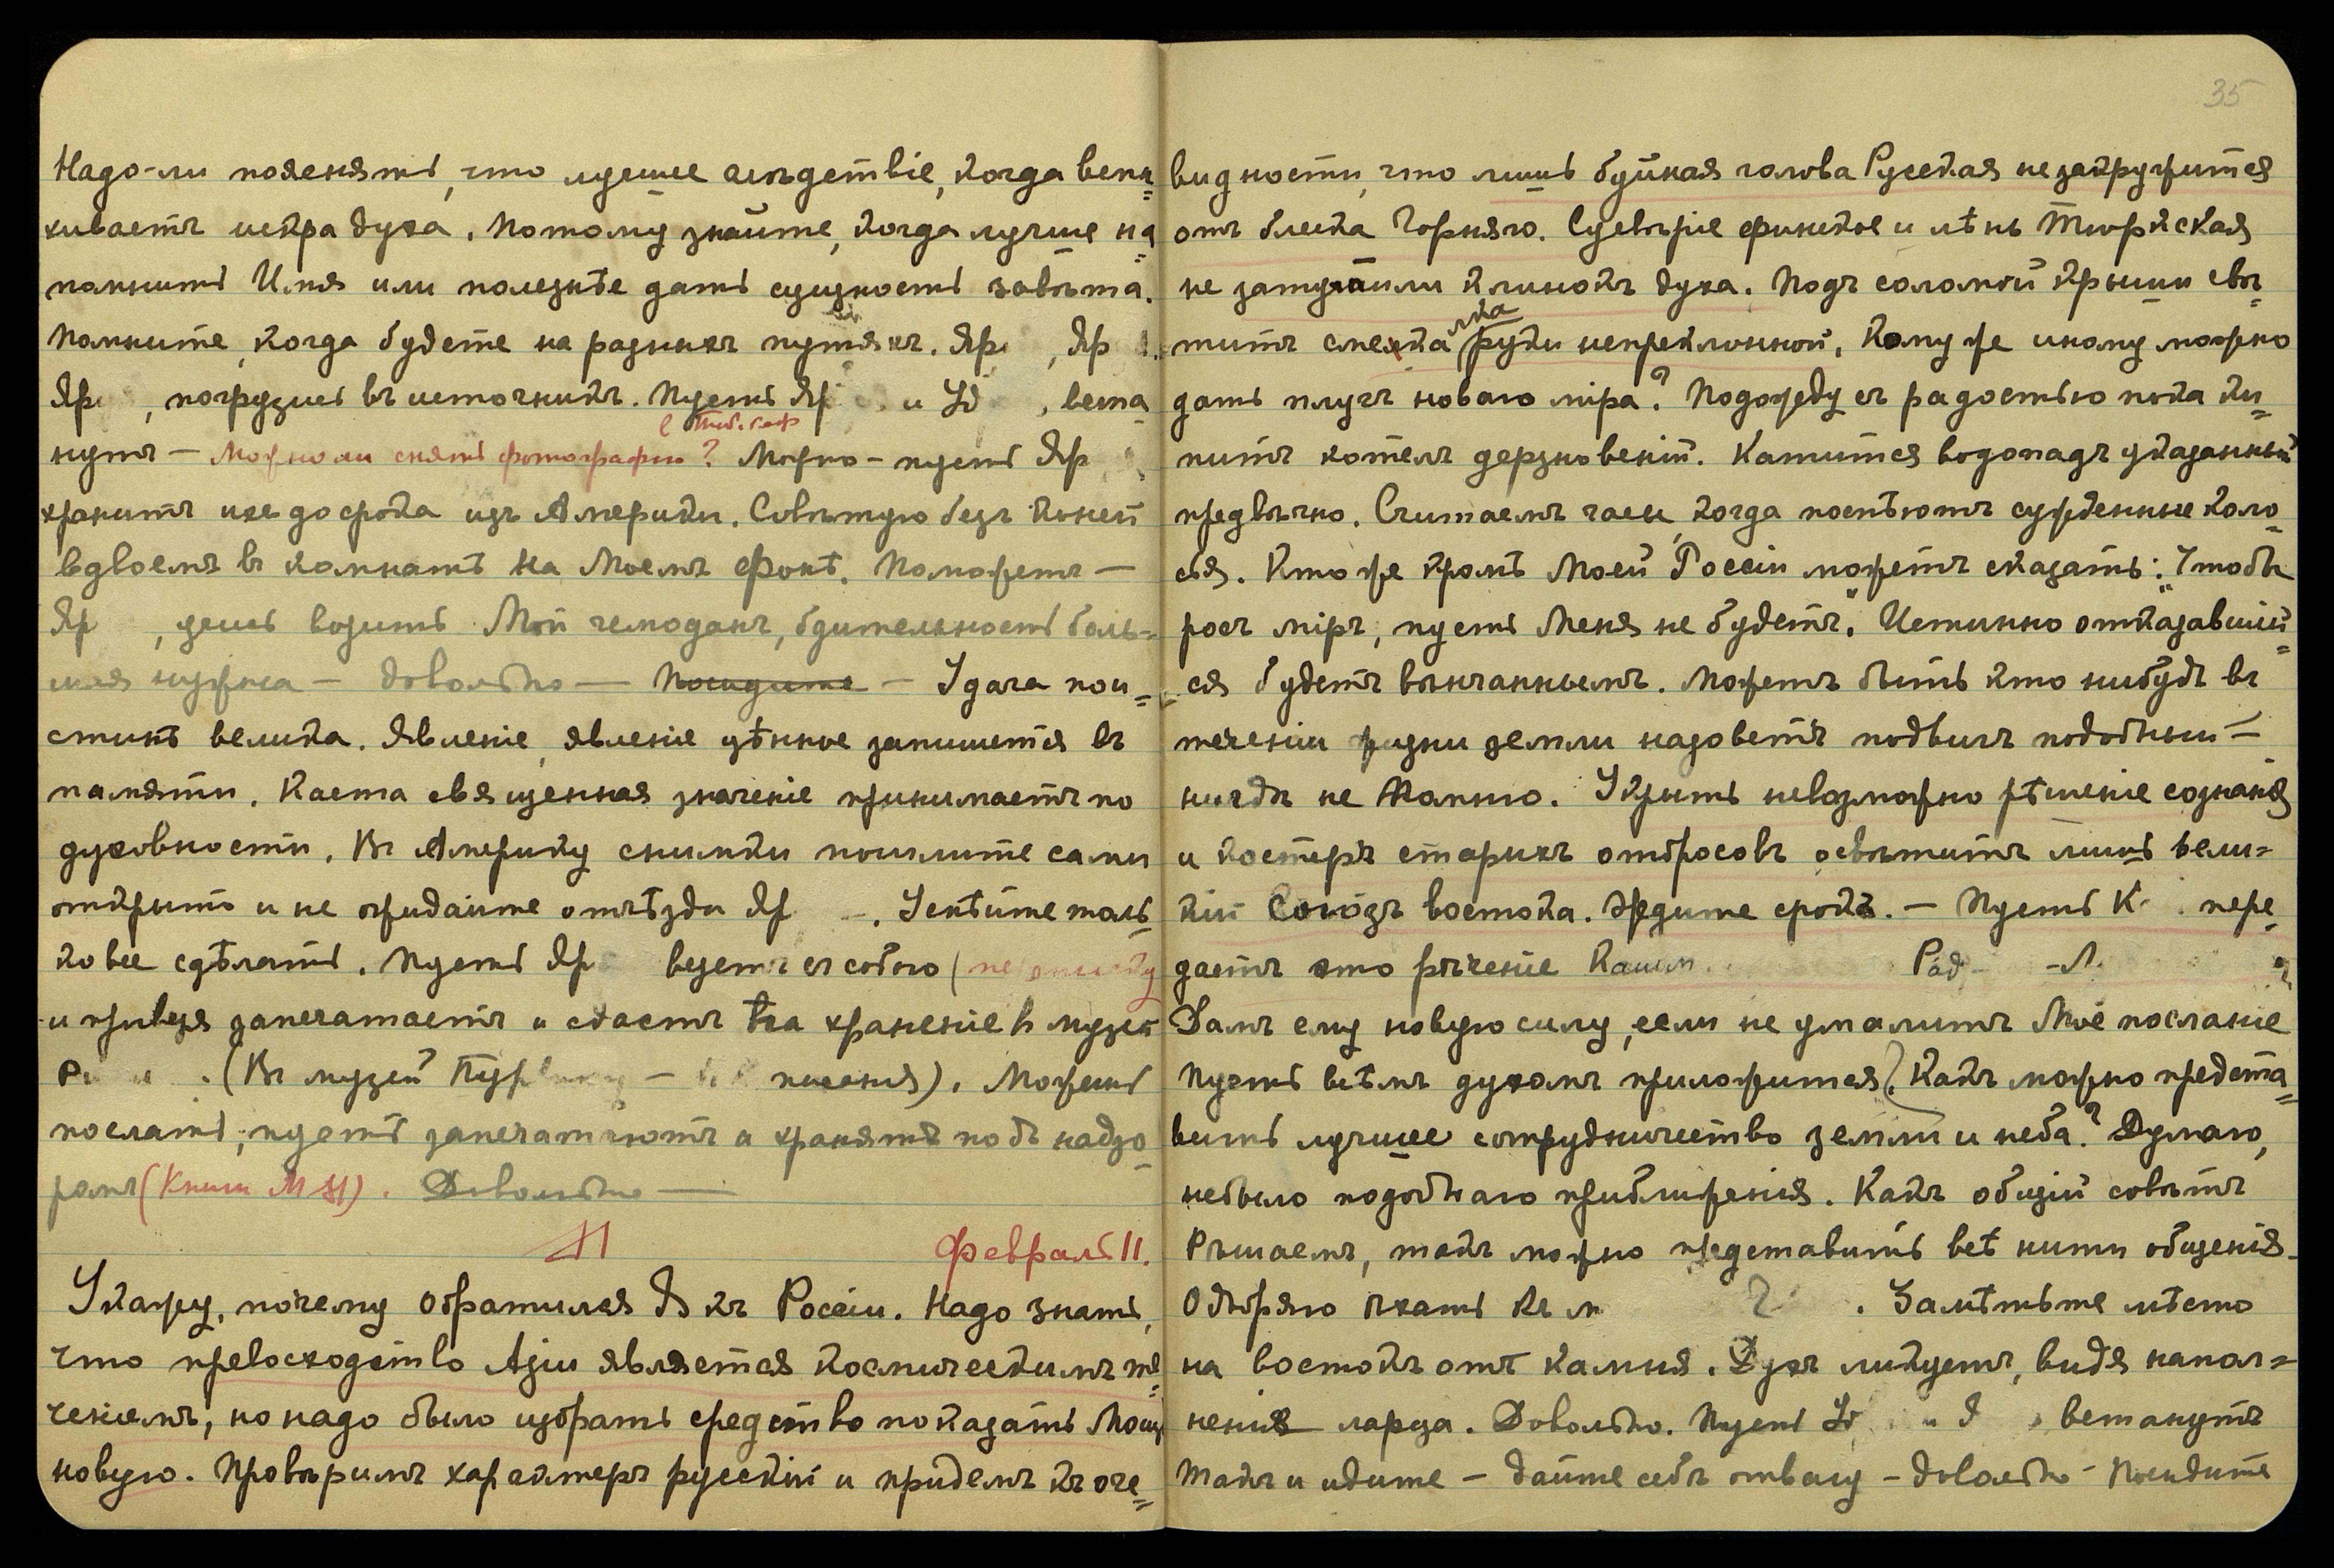 Надо-ли пояснять, что лучшее слѣдствіе, когда вспы=
хиваетъ искра духа. Потому знайте, когда лучше на=
помнить Имя или полезнѣе дать сущность завѣта.
Помните, когда будете на разныхъ путяхъ. Яр , Яр
Яр , погрузись въ источникъ. Пусть Яр и Уд , вста
нутъ — Можно ли снять фотографію? Можно - пусть Яр
хранитъ ихъ до срока изъ Америки. Совѣтую безъ коней
вдвоемъ въ комнатѣ на Моемъ Фонѣ. Поможетъ —
Яр , умѣй возить Мой чемоданъ, бдительность боль=
шая нужна — довольно — Посидите — Удача пои=
стинѣ велика. Явленіе, явленіе цѣнное запишется въ
памяти. Каста священная значеніе принимаетъ по
духовности. Въ Америку снимки пошлите сами
открыто и не ожидайте отъѣзда Яр . Успѣйте толь=
ко все сдѣлать. Пусть Яр везетъ съ собою (
и привезя запечатаетъ и сдастъ на храненіе в музей
Р . (Въ музей Пур — писанія). Можешь
послать, пусть запечатаютъ и хранятъ подъ надзо=
ромъ (Книги М Я). Довольно —
Февраль 11.
Укажу, почему обратился Я къ Россіи. Надо знать,
что превосходство Азіи является космическимъ те=
ченіемъ, но надо было избрать средство показать Мощь
новую. Провѣримъ характеръ русскій и придемъ къ оче=
35
видности, что лишь буйная голова Русская не закружится
отъ блеска Горняго. Суевѣріе финское и лѣнь Тюркская
не затушили клинокъ духа. Подъ соломой крыши свѣ=
титъ смекалка руки непреклонной, кому же иному можно
дать плугъ новаго міра? Подожду съ радостью пока ки=
питъ котелъ дерзновеній. Катится водопадъ указанный
предвѣчно. Считаемъ часы, когда поспѣютъ сужденные коло=
сья. Кто же кромѣ Моей Россіи можетъ сказать: „Чтобы
росъ міръ, пусть Меня не будетъ". Истинно отказавшій=
ся будетъ вѣнчаннымъ. Можетъ быть кто нибудь въ
теченіи жизни земли назоветъ подвигъ подобный —
нигдѣ не помню. Укрыть невозможно рѣшеніе сознанія
и костеръ старыхъ отбросовъ освѣтитъ лишь вели=
кій Союзъ востока. Ждите срока. — Пусть К пере=
дастъ это рѣченіе Рад - Л
Дамъ ему новую силу, если не умалитъ Моё посланіе
Пусть всѣмъ духомъ приложится. Какъ можно предста=
вить лучшее сотрудничество земли и неба? Думаю,
небыло подобнаго приближенія. Какъ общій совѣтъ
Рѣшаемъ, такъ можно представить всѣ нити общенія.
Одобряю ѣхать . Замѣтьте мѣсто
на востокъ отъ камня. Духъ ликуетъ, видя напол=
ненія ларца. Довольно. Пусть Уд и Я встанутъ
Такъ и идите — дайте себѣ отвагу — довольно — Посидите